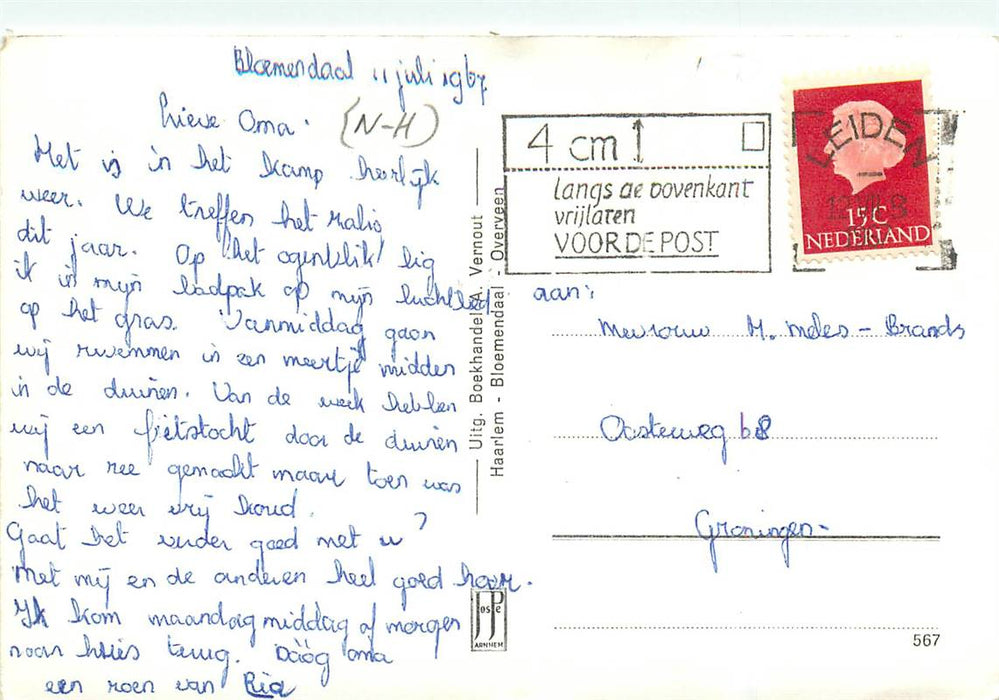 Bloemendaal 11 juli 1967
(N-H)
Lieve Oma.
Het is in het kamp heerlijk
weer. We treffen het radio
dit jaar. Op het ogenblik lig
ik in mijn badpak op mijn luchtbed
op het gras. Vanmiddag gaan
wij zwemmen in een meertje midden
in de duinen. Van de week hebben
wij een fietstocht door de duinen
naar zee gemaakt maar toen was
het weer vrij koud.
Gaat het verder goed met u?
Met mij en de anderen heel goed hoor.
Ik kom maandagmiddag of morgen
naar huis terug. Dààg oma
een zoen van Ria
Uitg. Boekhandel A. Vernout
Haarlem - Bloemendaal - Overveen
JosPé
ARNHEM
4 cm
langs de bovenkant
vrijlaten
VOOR DE POST
LEIDEN
15C
NEDERLAND
aan:
Mevrouw M. Meles - Brands
Oosterweg 68
Groningen-
567